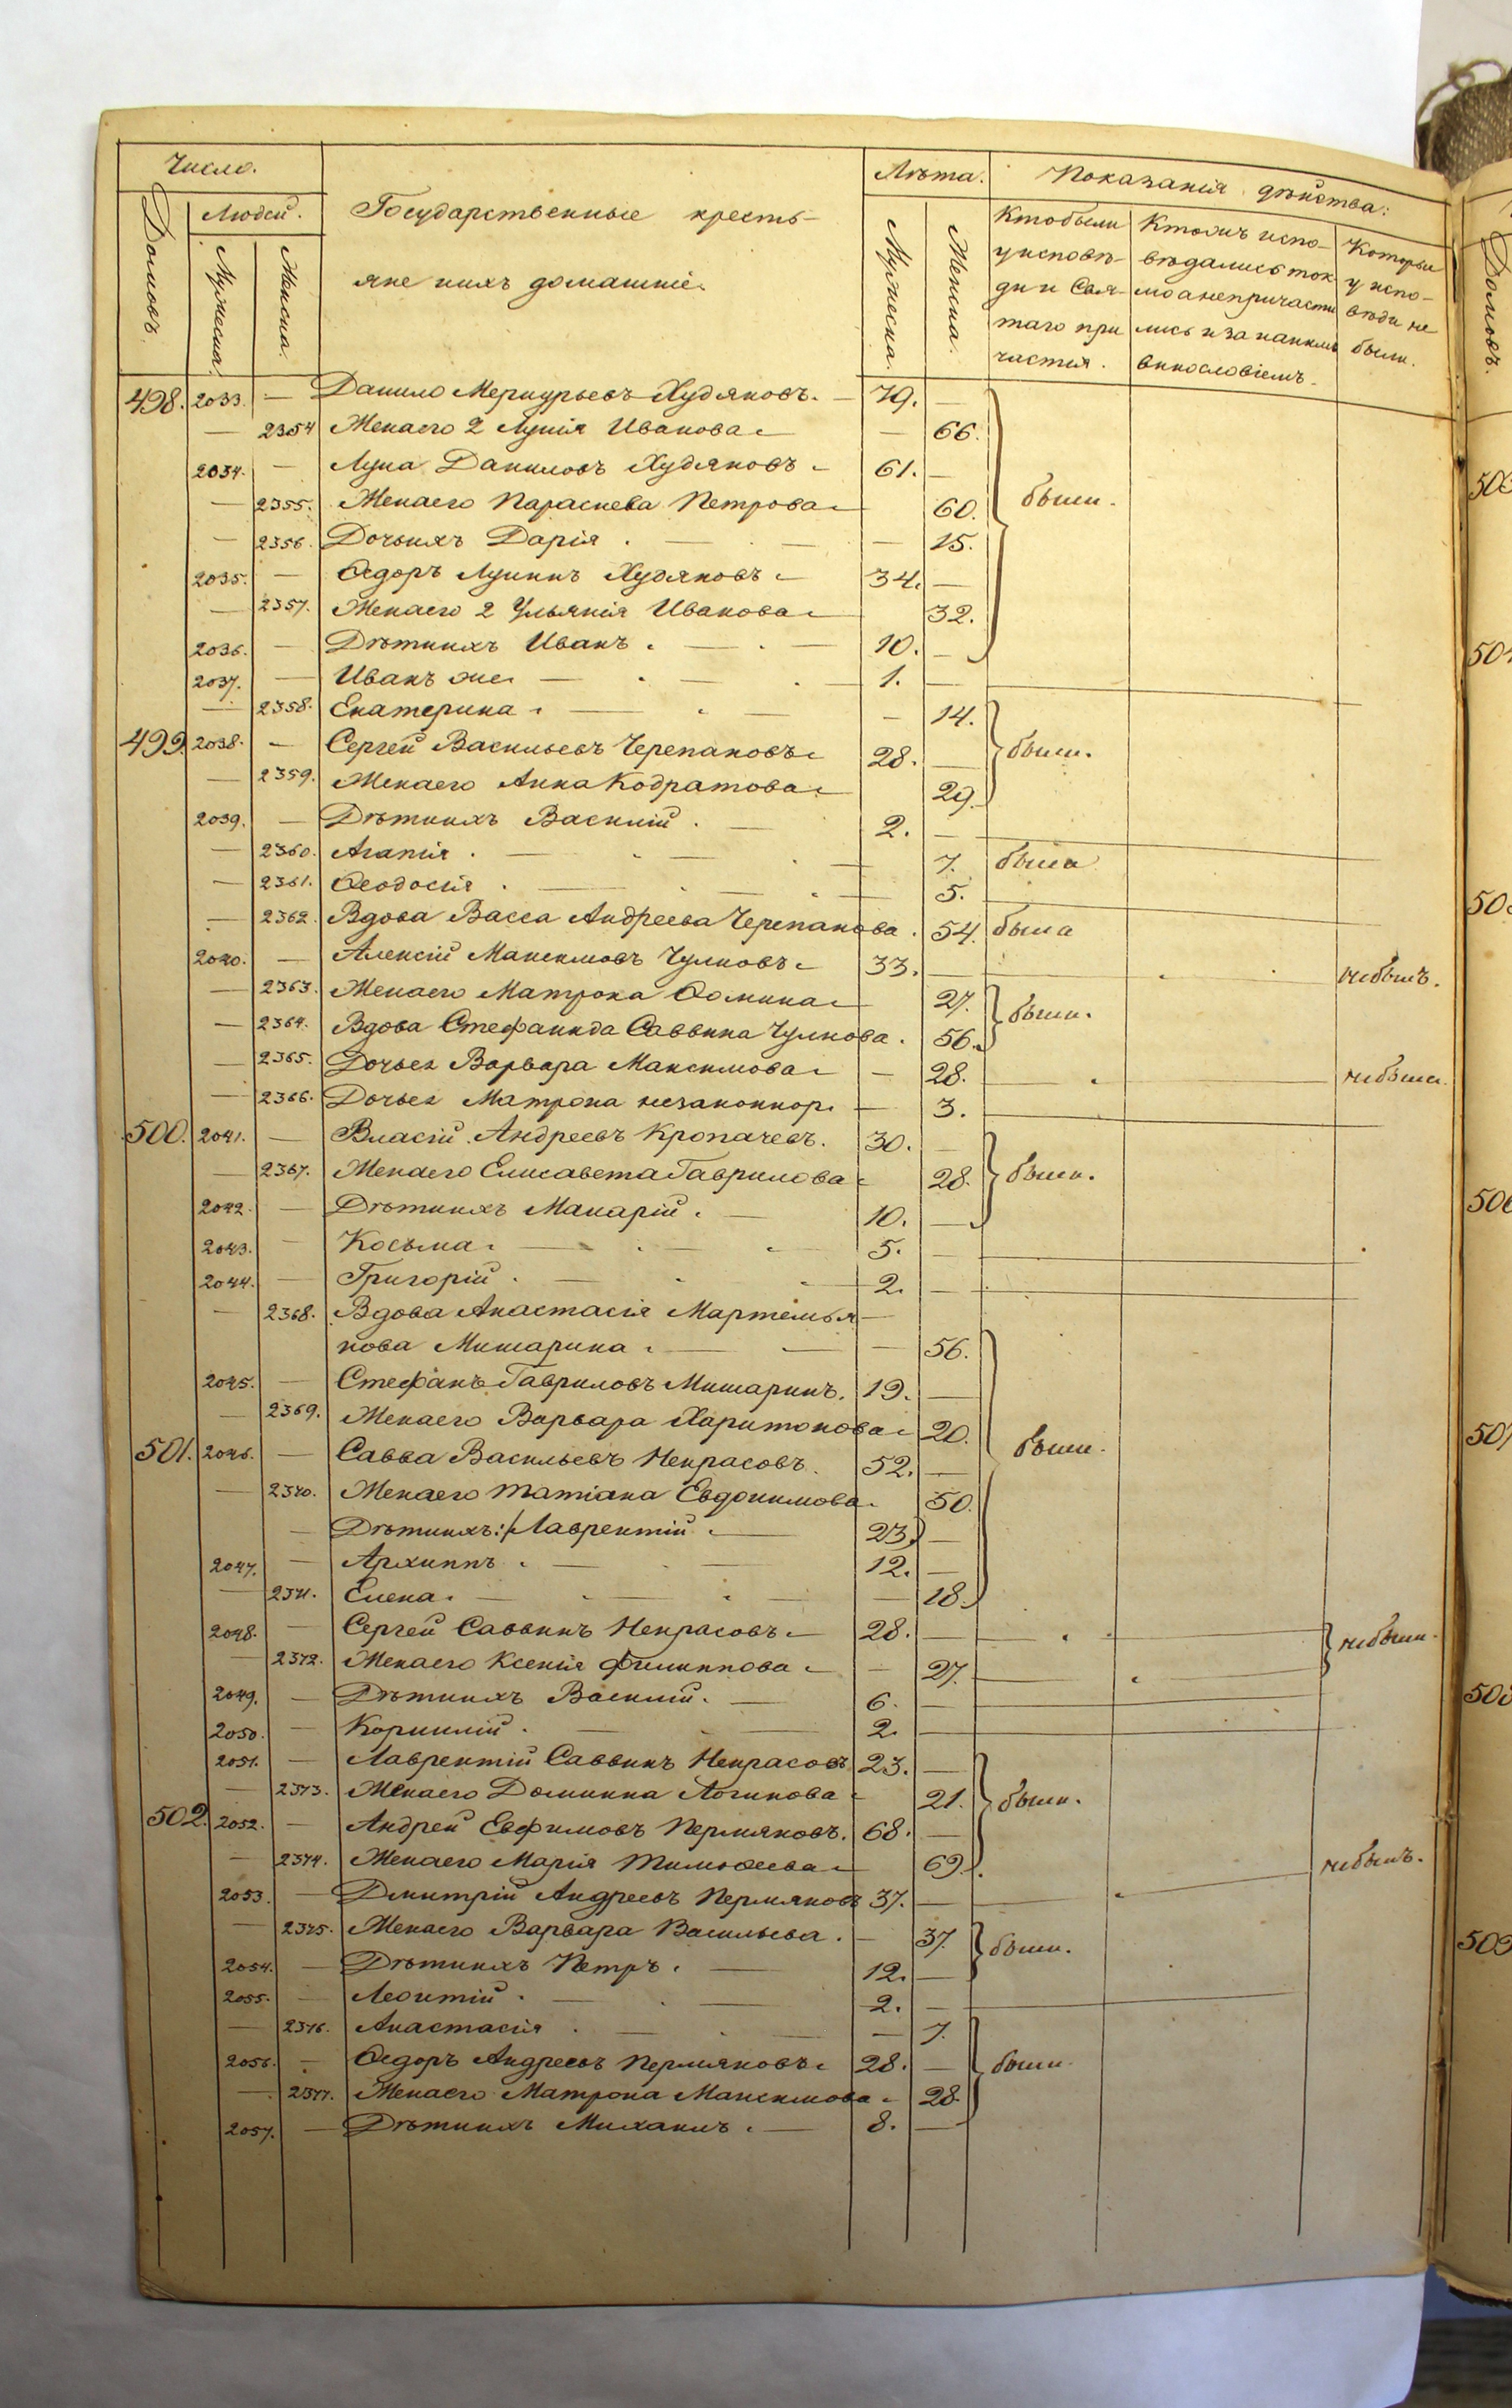 Число. Лѣта. Показанія дѣйства:
Домовъ. Людей. Мужеска. Женска. Государственные кресть- Мужеска. Женска. Кто были Кто ихъ испо- Которыи
яне ихъ домашніе. у исповѣ- вѣдались ток у испо-
ди и Свя- мо а непричасти вѣди не
таго при лись и за какимъ были.
частія. винословіемъ.
498. 2033. — Данило Меркурьевъ Худяковъ. — 79. —
— 2354 Жена его 2 Лукія Иванова — 66.
2034. — Лука Даниловъ Худяковъ 61. —
— 2355. Жена его Параскева Петрова 60. были.
— 2356. Дочь ихъ Дарія. — 15.
2035. — Ѳедоръ Лукинъ Худяковъ 34. —
— 2357. Жена его 2 Ульянія Иванова 32.
2036. — Дѣти ихъ Иванъ. 10. —
2037. — Иванъ же 1. —
— 2358. Екатерина — 14.
499. 2038. — Сергей Васильевъ Черепановъ 28. — были.
— 2359. Жена его Анна Кодратова 29.
2039. — Дѣти ихъ Василій. 2. —
— 2360. Агапія. — 7. была
— 2361. Ѳеодосія. — 5.
— 2362. Вдова Васса Андреева Черепанова. 54. была
2040. — Алексій Максимовъ Чулковъ 33. — небылъ.
— 2363. Жена его Матрона Ѳомина 27. были.
— 2364. Вдова Стефанида Саввина Чулкова. 56.
— 2365. Дочь ея Варвара Максимова — 28. небыла.
— 2366. Дочь ея Матрона незаконнор. — 3.
500. 2041. — Власій Андреевъ Кропачевъ. 30. —
— 2367. Жена его Елисавета Гаврилова 28. были.
2042. — Дѣти ихъ Макарій. 10. —
2043. — Косьма. 5. —
2044. — Григорій. 2. —
— 2368. Вдова Анастасія Мартемья —
нова Мишарина. — 56.
2045. — Стефанъ Гавриловъ Мишаринъ. 19. —
— 2369. Жена его Варвара Харитонова 20.
501. 2046. — Савва Васильевъ Некрасовъ. 52. — были.
— 2370. Жена его Татіана Евдокимова. 50.
— Дѣти ихъ: Лаврентій 23) —
2047. — Архиппъ. 12. —
— 2371. Елена. — 18.
2048. — Сергей Саввинъ Некрасовъ 28. — небыли.
— 2372. Жена его Ксенія Филиппова — 27.
2049. — Дѣти ихъ Василій. 6. —
2050. — Корнилій. 2. —
2051. — Лаврентій Саввинъ Некрасовъ 23. —
— 2373. Жена его Домника Логинова 21. были.
502. 2052. — Андрей Евфимовъ Пермяковъ. 68. —
— 2374. Жена его Марія Тимоѳеева 69.
2053. — Димитрій Андреевъ Пермяковъ 37. — небылъ.
— 2375. Жена его Варвара Васильева. — 37. были.
2054. — Дѣти ихъ Петръ. 12. —
2055. — Леонтій. 2. —
— 2376. Анастасія. — 7.
2056. — Ѳедоръ Андреевъ Пермяковъ 28. — были.
— 2377. Жена его Матрона Максимова 28.
2057. — Дѣти ихъ Михаилъ. 8. —